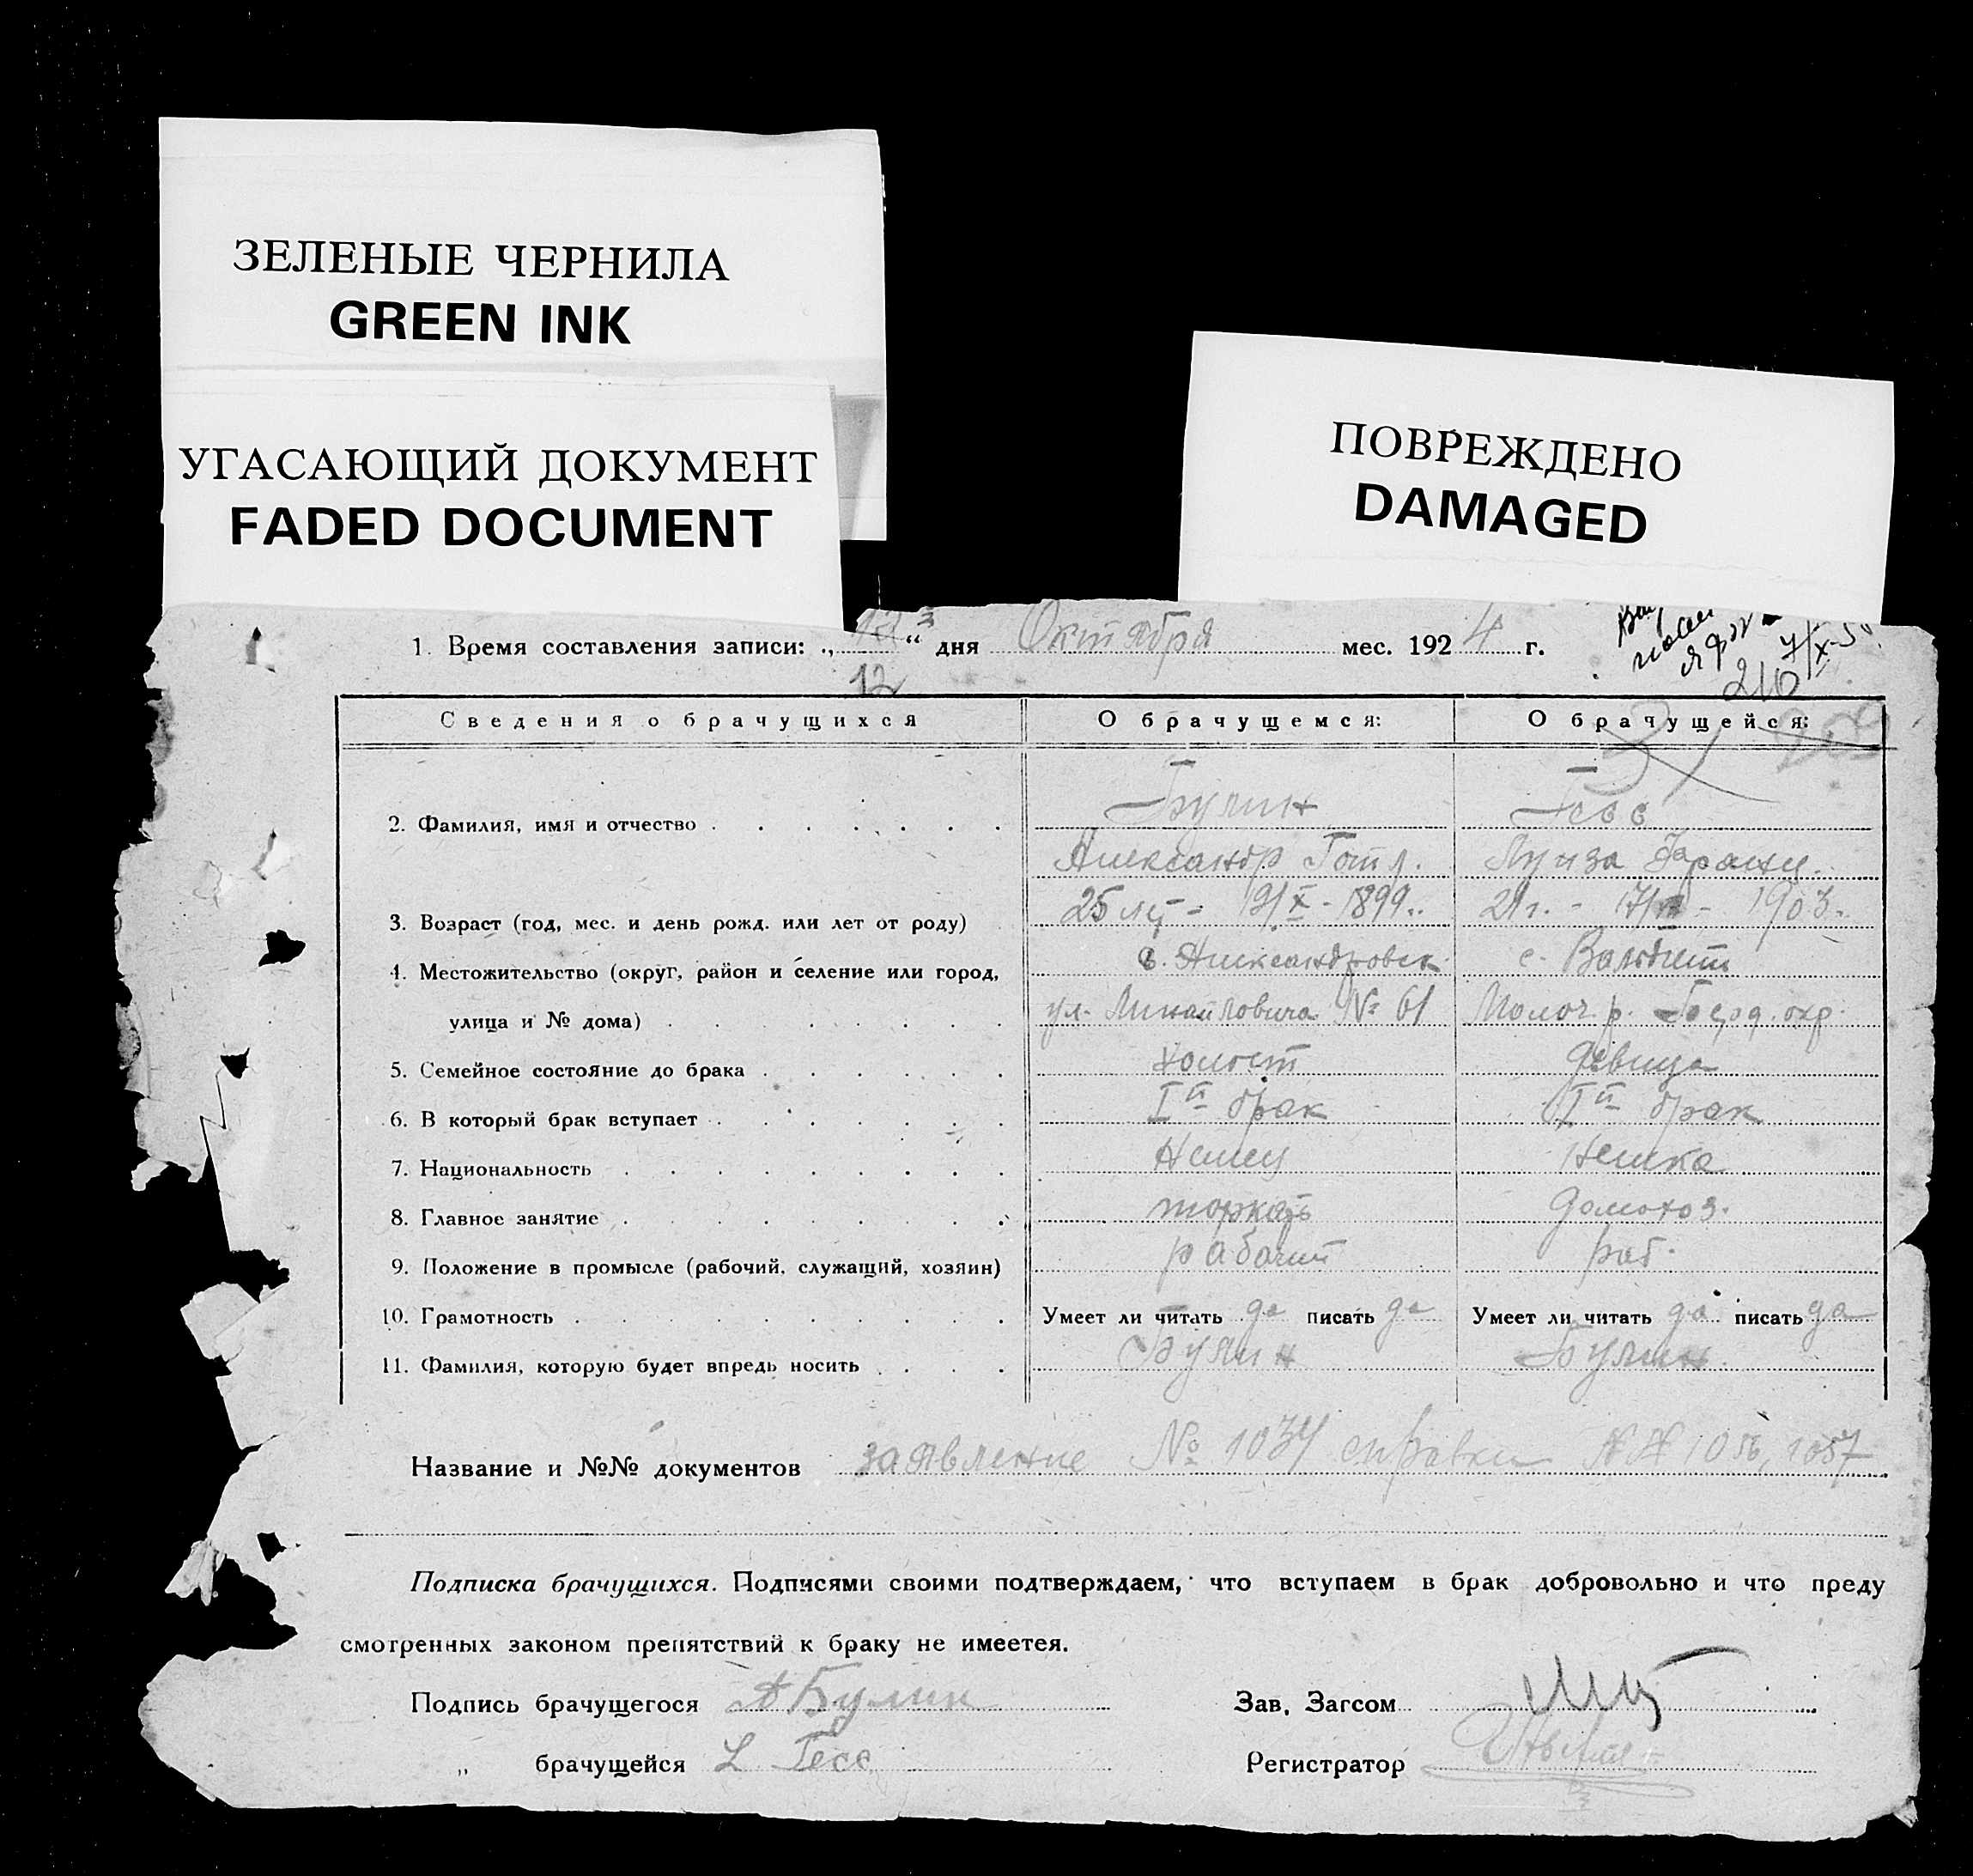 ЗЕЛЕНЫЕ ЧЕРНИЛА
GREEN INK
УГАСАЮЩИЙ ДОКУМЕНТ
FADED DOCUMENT
ПОВРЕЖДЕНО
DAMAGED
1. Время составления записи: „ “ дня Октября мес. 1924 г.
12
210
Сведения о брачущихся О брачущемся: О брачущейся:
2. Фамилия, имя и отчество Булин Гесс
Александр Готл. Луиза Франц.
3. Возраст (год, мес. и день рожд. или лет от роду) 25 лет - X - 1899. 21 г. - 17 - 1903.
4. Местожительство (округ, район и селение или город, г. Александровск с. Вальдгейм
улица и № дома) ул. № 61 Молоч. р. окр.
5. Семейное состояние до брака холост девица
6. В который брак вступает Iй брак Iй брак
7. Национальность Немец Немка
8. Главное занятие токарь домохоз.
9. Положение в промысле (рабочий, служащий, хозяин) рабочий раб.
10. Грамотность Умеет ли читать да писать да Умеет ли читать да писать да
11. Фамилия, которую будет впредь носить Булин Булин
Название и №№ документов заявление № 1034 справки №№ 1056, 1057
Подписка брачущихся. Подписями своими подтверждаем, что вступаем в брак добровольно и что преду
смотренных законом препятствий к браку не имеетея.
Подпись брачущегося А Булин Зав. Загсом
„ брачущейся L Гесс Регистратор